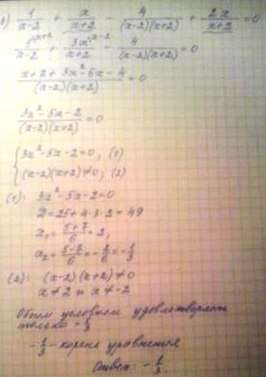 1/(x-2) + x/(x+2) - 4/((x-2)(x+2)) + 2x/(x+2) = 0
1^(x+2)/(x-2) + 3x^(x-2)/(x+2) - 4/((x-2)(x+2)) = 0
(x+2+3x²-6x-4)/((x-2)(x+2)) = 0
(3x²-5x-2)/((x-2)(x+2)) = 0
{ 3x²-5x-2=0, (1)
(x-2)(x+2)≠0; (2)
(1): 3x²-5x-2=0
D=25+4·3·2=49
x₁=(5+7)/6=2,
x₂=(5-7)/6=-2/6=-1/3
(2): (x-2)(x+2)≠0
x≠2 и x≠-2
Обоим условиям удовлетворяет
только -1/3
-1/3 - корень уравнения
Ответ: -1/3.